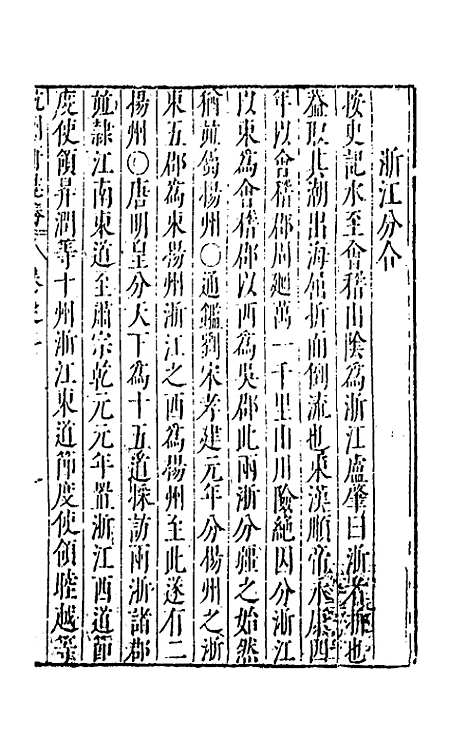 浙江分合
按史記水至會稽山陰為浙江盧肇曰浙者折也
蓋取其潮出海屈折而倒流也東漢順帝永康四
年以會稽郡周廻萬一千里山川險絕因分浙江
以東為會稽郡以西為吳郡此兩浙分疆之始然
猶並隸揚州○通鑑劉宋孝建元年分揚州之浙
東五郡為東揚州浙江之西為揚州至此遂有二
揚州○唐明皇分天下為十五道採訪兩浙諸郡
並隸江南東道至肅宗乾元元年置浙江西道節
度使領昇潤等十州浙江東道節度使領睦越等